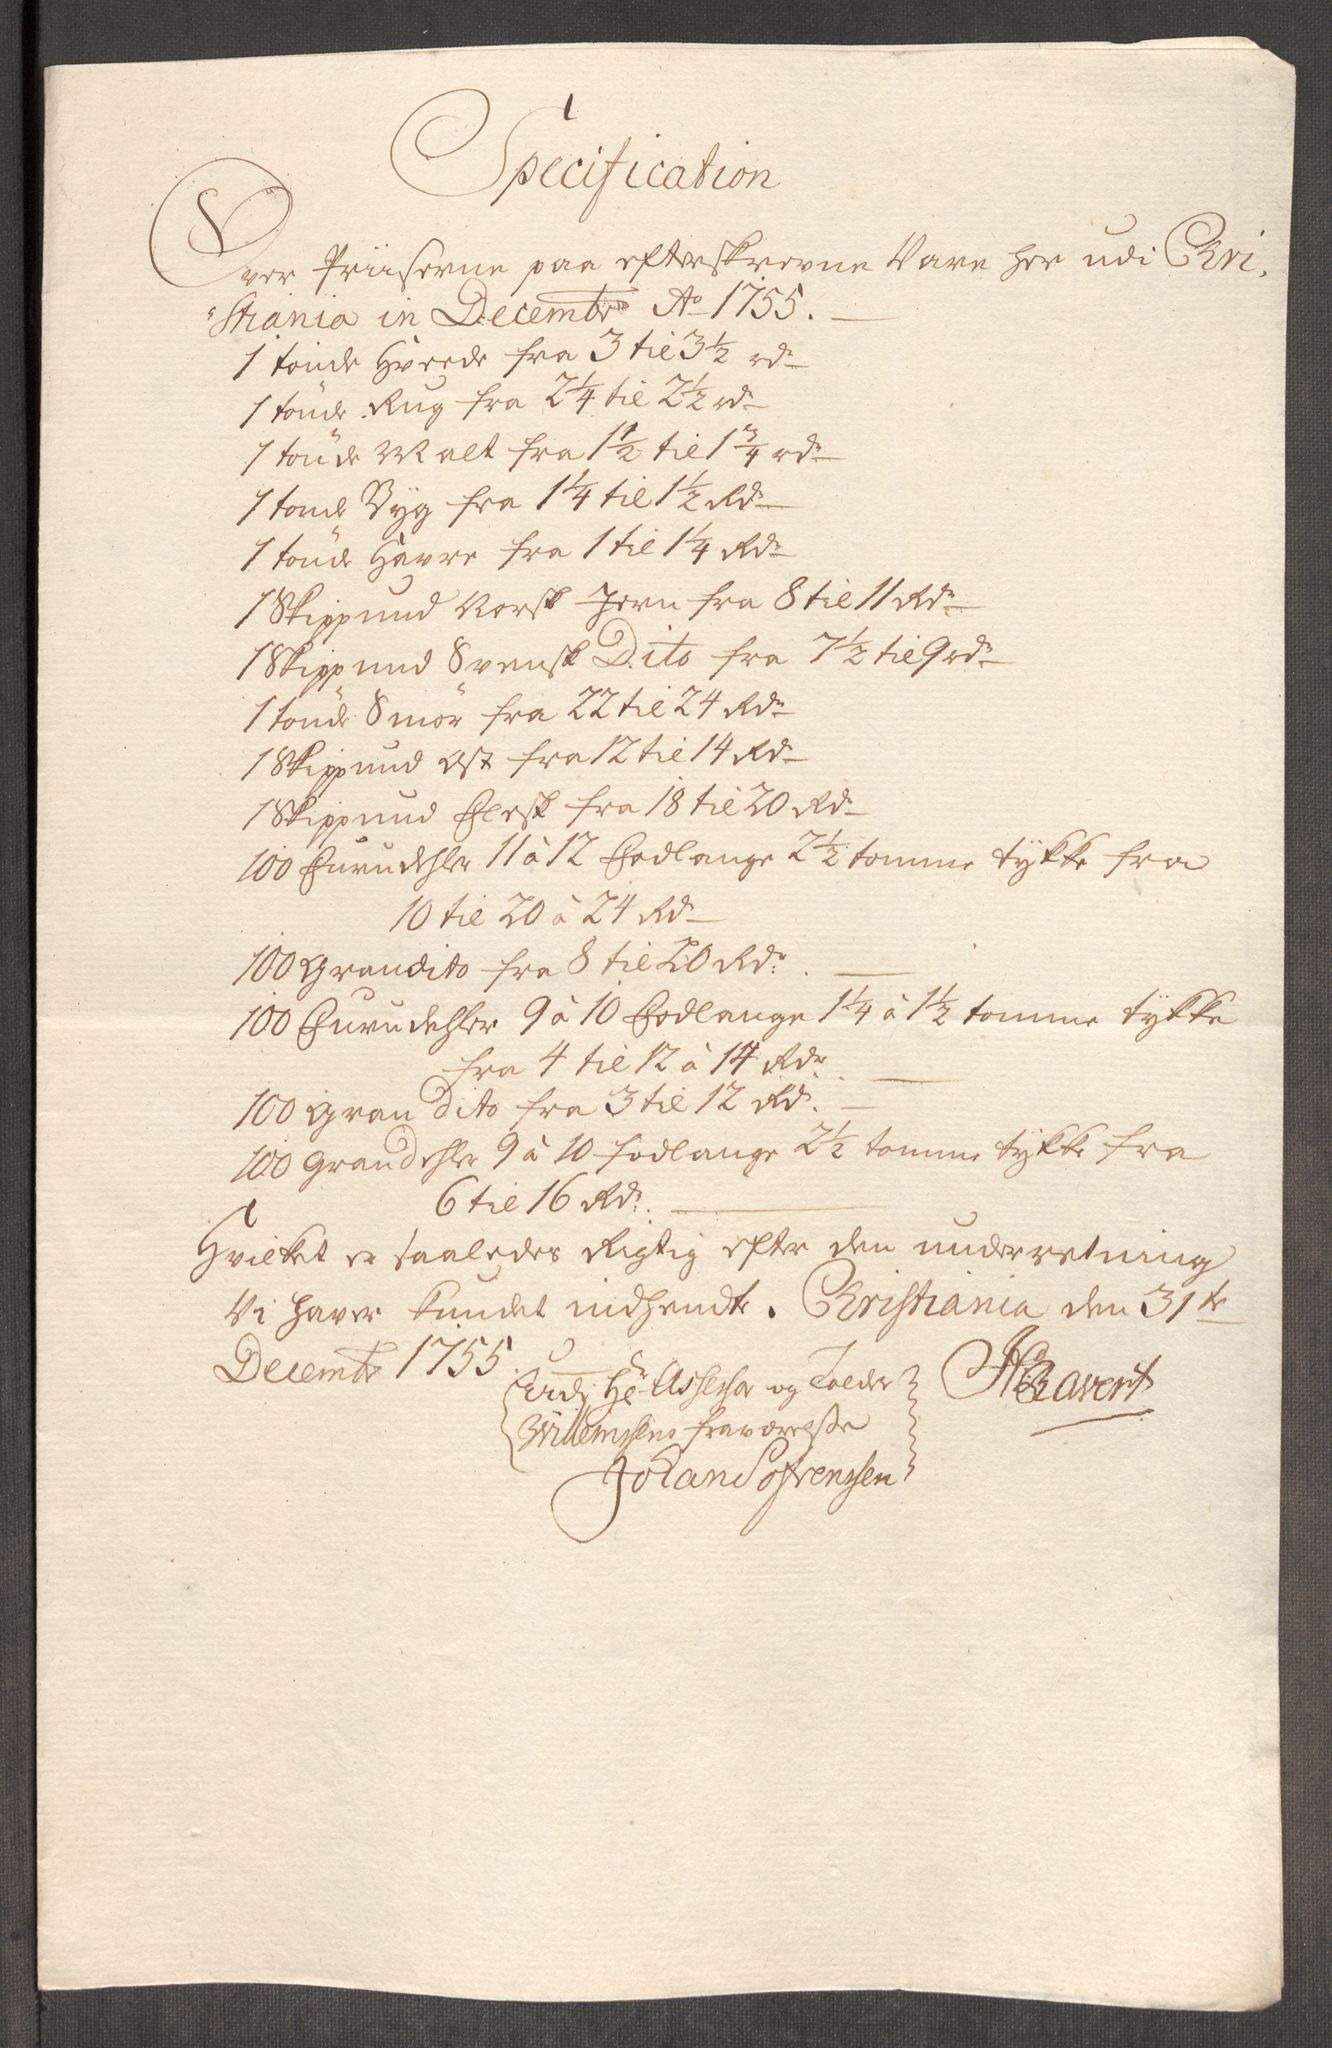 Specification
Over Priiserne paa efterskrevne Vare her udi Chri,
"stiania in Decembr Ao 1755.
1 tønde Hvede fra 3 til 3½ rdr
1 tønde Rug fra 2¼ til 2½ rdr
1 tønde Malt fra 1½ til 1¾ rdr
1 tønde Byg fra 1¼ til 1½ Rdr
1 tønde Havre fra 1 til 1¼ Rdr
1 Skippund Norsk Jern fra 8 til 11 Rdr
1 Skippund Svensk Dito fra 7½ til 9 rdr
1 tønde Smör fra 22 til 24 Rdr
1 Skippund Ost fra 12 til 14 Rdr
1 Skippund Flesk fra 18 til 20 Rdr
100 Furudehler 11 à 12 Fodlange 2½ tomme tykke fra
10 til 20 à 24 Rdr
100 Gran dito fra 8 til 20 Rdr.
100 Furudehler 9 à 10 Fodlange 1¼ à 1½ tomme tykke
fra 4 til 12 à 14 Rdr.
100 Gran Dito fra 3 til 12 Rdr.
100 Grandehler 9 à 10 fodlange 2½ tomme tykke fra
6 til 16 Rdr.
Hvilket er saaledes Rigtig efter den underretning
Vi haver kundet indhendte. Christiania den 31te
Decembr 1755.
Udi Hr Assessor og Tolder
Willemsens fraværelse
Johan Søfrensen